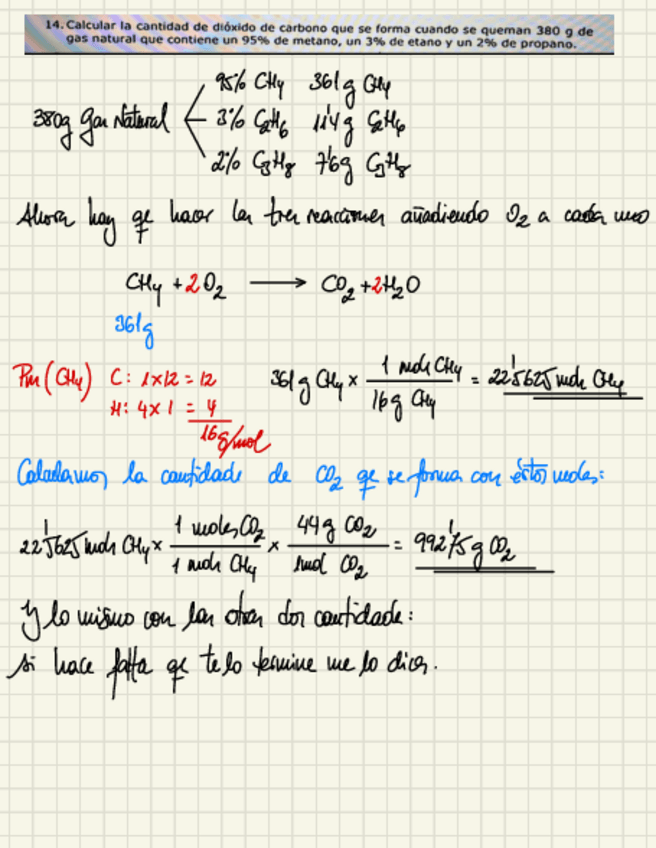 14. Calcular la cantidad de dióxido de carbono que se forma cuando se queman 380 g de
gas natural que contiene un 95% de metano, un 3% de etano y un 2% de propano.
95% CH4 361 g CH4
380g Gas Natural 3% C2H6 11'4 g C2H6
2% C3H8 7'6g C3H8
Ahora hay qe hacer las tres reacciones añadiendo O2 a cada uno
CH4 + 2O2 → CO2 + 2H2O
361g
Pm (CH4) C: 1x12 = 12
H: 4x1 = 4
16g/mol
361 g CH4 x 1 mol CH4 / 16 g CH4 = 22'5625 mol CH4
Calculamos la cantidade de CO2 qe se forma con éstos moles:
22'5625 mol CH4 x 1 moles CO2 / 1 mol CH4 x 44 g CO2 / 1mol CO2 = 992'75 g CO2
Y lo mismo con las otras dos cantidade:
si hace falta qe te lo termine me lo dices.